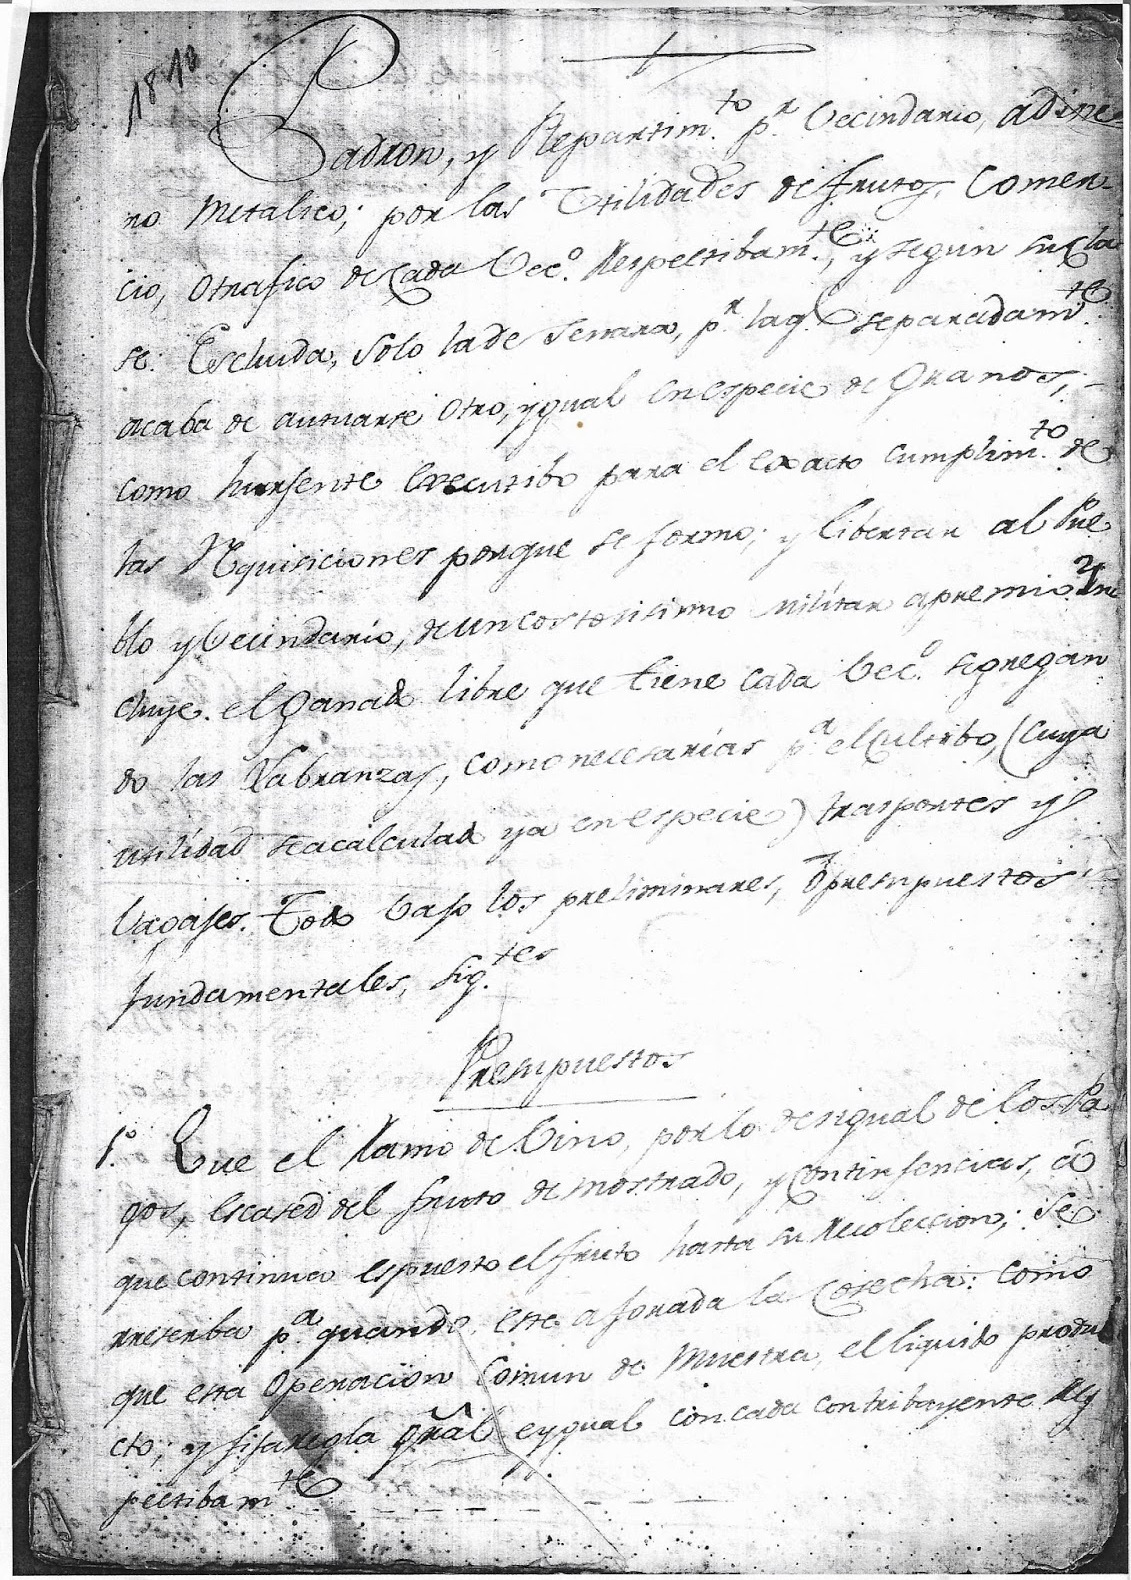 1810
Padron, y Repartim.to p.r Vecindario, a dine
ro Metalico; por las Utilidades de frutos, Comer
cio, o trafico de Cada Vec.o Respectibam.te, y segun su Cla
se: Escluida, solo la de Senara, p.r la q.e separadam.te
acaba de actuarse otro, ygual en especie de Granos,
como hurjente Executibo para el exacto cumplim.to de
las Requisiciones porque se formo; y libertar al Pue
blo y Vecindario, de un costosisimo militar apremio. Yn
cluye. el Ganado libre que tiene cada Vec.o segregan
do las Labranzas, como necesarias p.a el Cultibo, (Cuya
utilidad se a calculado ya en especie) trasportes y
Vagajes. Todo bajo los preliminares, ó presupuestos
fundamentales, sig.tes
Presupuestos
1.o Que el Ramo de Vino, por lo desigual de los Pa
gos, escased del fruto demostrado, y Continjencias, á
que continua espuesto el fruto hasta su Recoleccion; se
rreserba p.a quando este aforada la Cosecha: como
que esta Operacion Comun de Muestra, el liquido produ
cto; y fija regla gral e ygual con cada contribuyente Res
pectibam.te